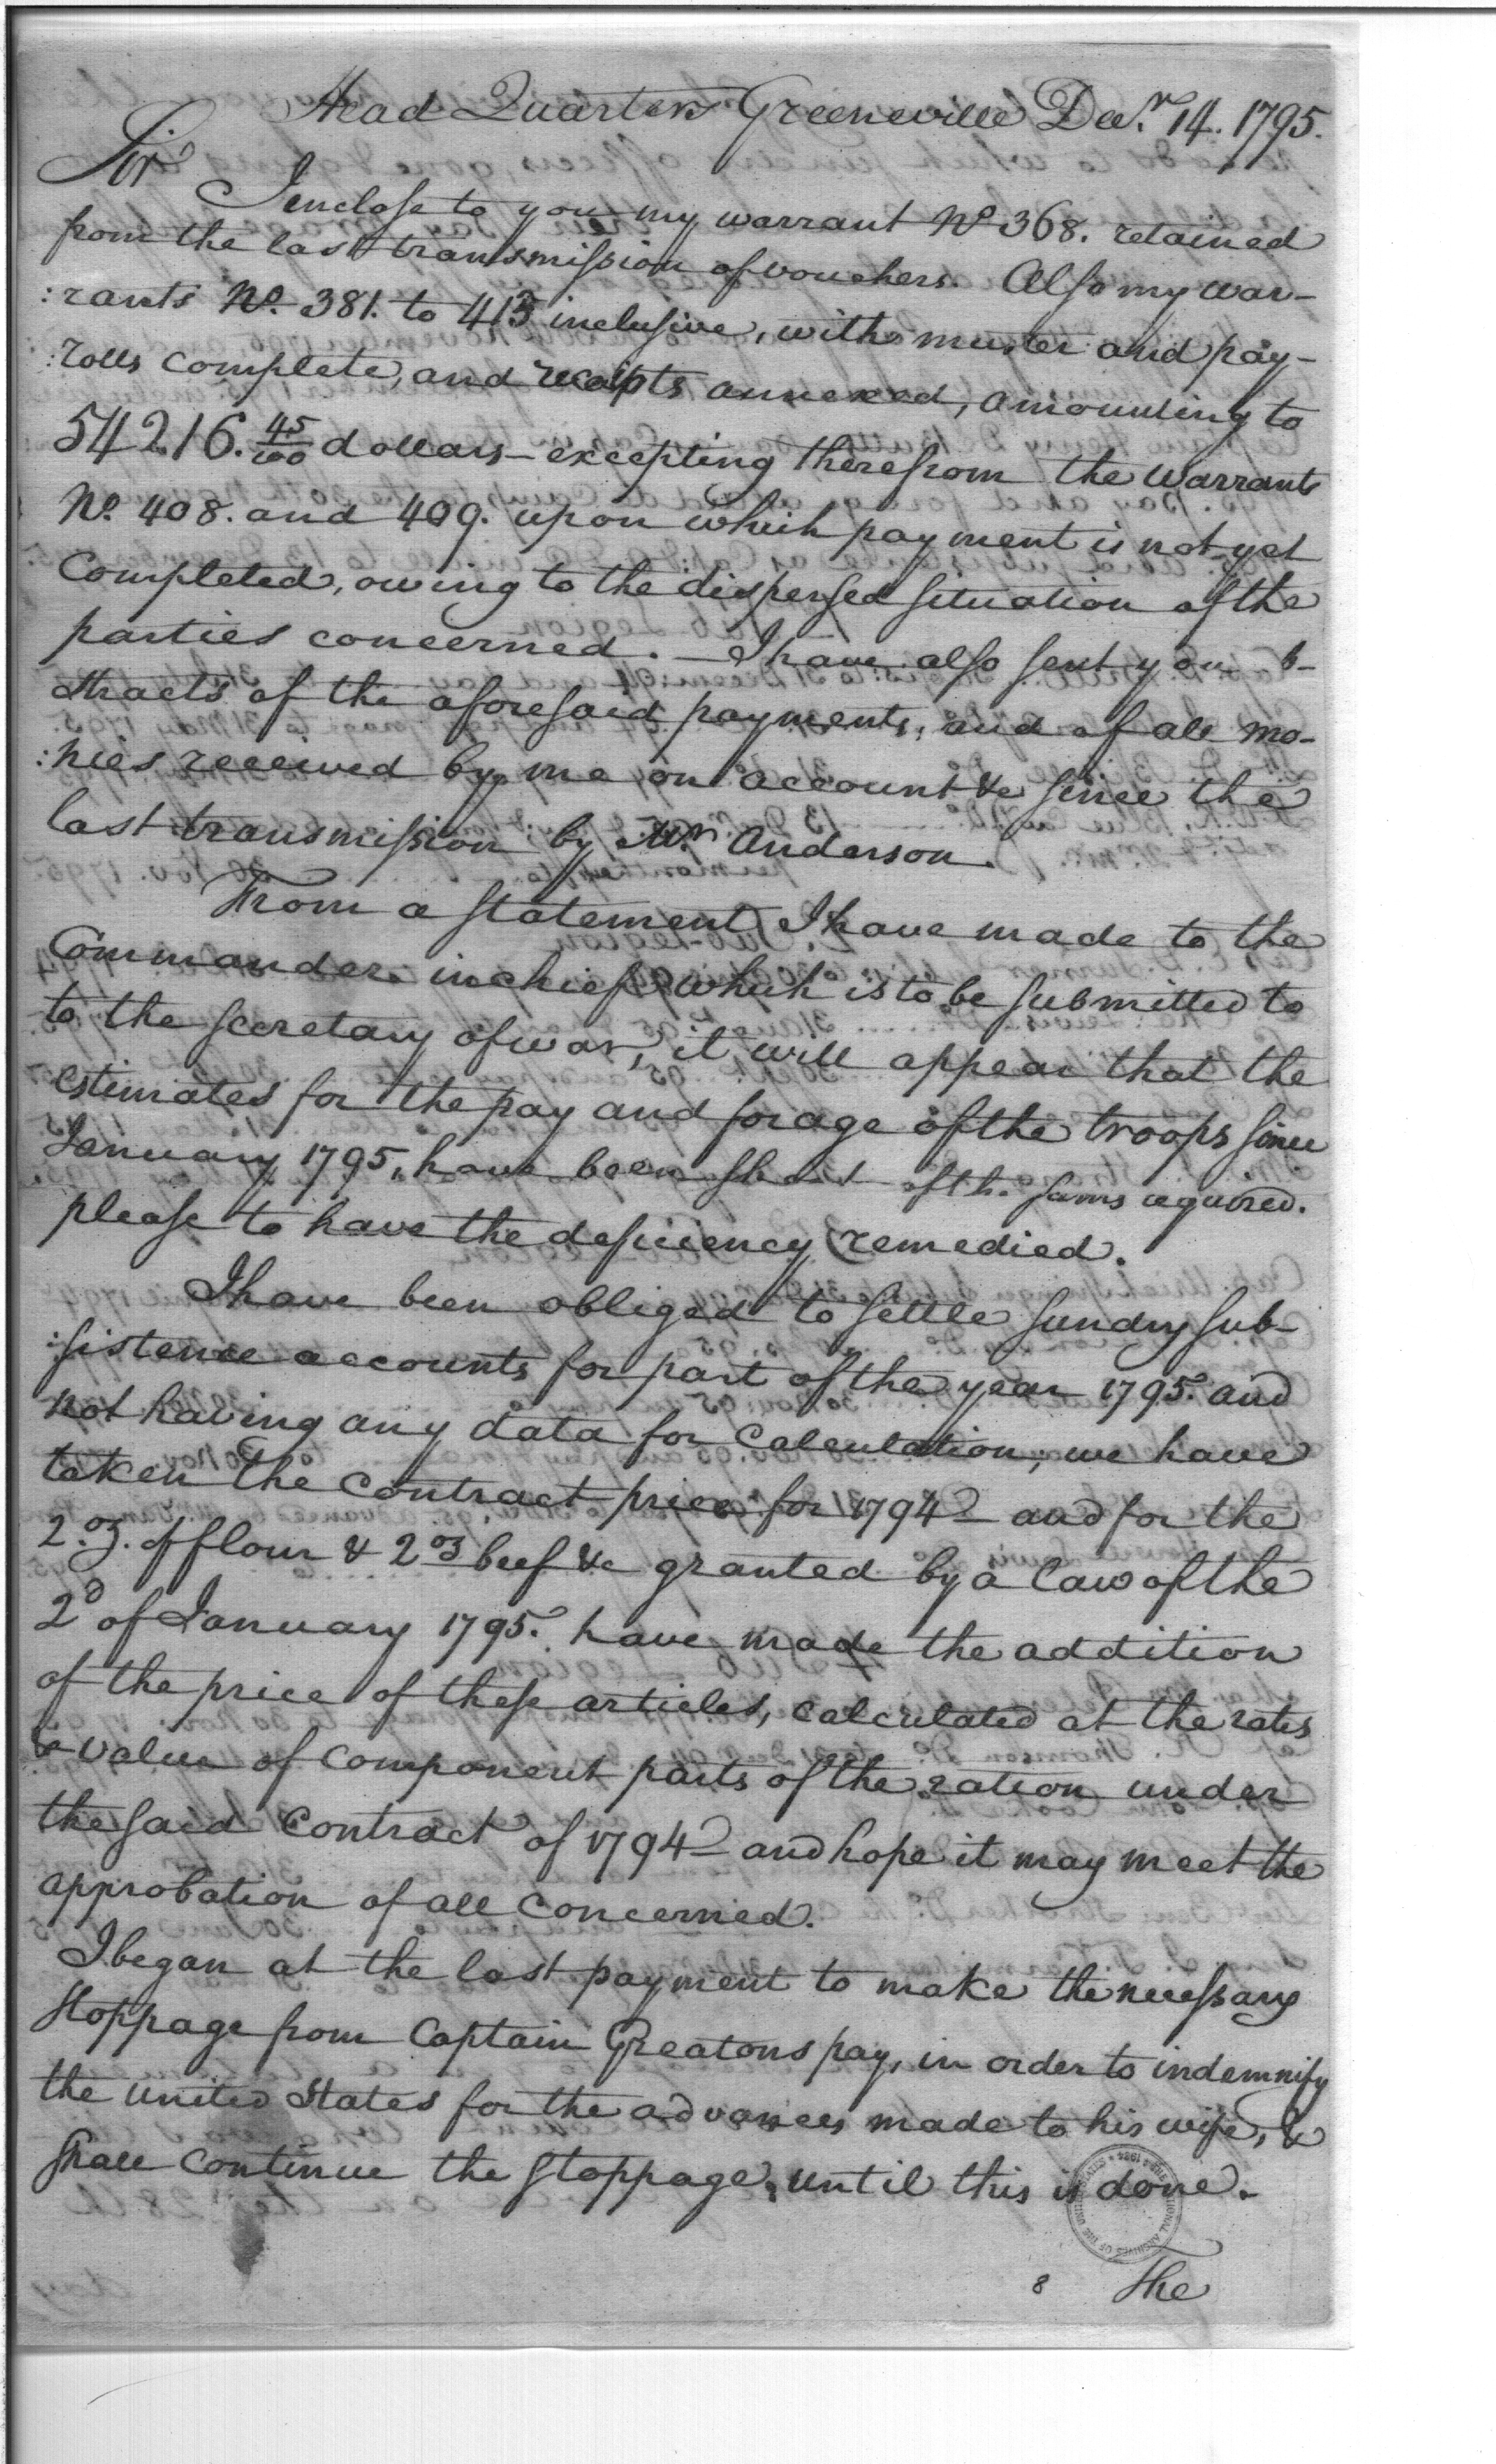 Head Quarters Greeneville Decr. 14. 1795.
Sir
I enclose to you my warrant No. 368. retained
from the last transmission of vouchers. Also my war-
:rants No. 381. to 413 inclusive, with muster and pay-
:rolls complete, and receipts annexed, amounting to
54216. 45/100 dollars — excepting therefrom the warrants
No. 408. and 409. upon which payment is not yet
Completed, owing to the dispersed situation of the
parties concerned. — I have also sent you
stracts of the aforesaid payments, and of all mo-
:nies received by me on account &c since the
last transmission by Mr. Anderson.
From a statement I have made to the
Commander in chief which is to be submitted to
to the secretary of war, it will appear that the
estimates for the pay and forage of the troops since
January 1795, have been short of the sums required.
please to have the deficiency remedied.
I have been obliged to settle sundry sub-
:sistence accounts for part of the year 1795. and
not having any data for calculation, we have
taken the contract price for 1794 — and for the
2. oz. of flour & 2 oz beef &c granted by a law of the
2d of January 1795. have made the addition
of the price of these articles, calculated at the rates
& value of component parts of the ration under
the said contract of 1794 — and hope it may meet the
approbation of all concerned.
I began at the last payment to make the necessary
stoppage from Captain Greatons pay, in order to indemnify
the united States for the advances made to his wife, &
shall continue the stoppage, until this is done.
8 The